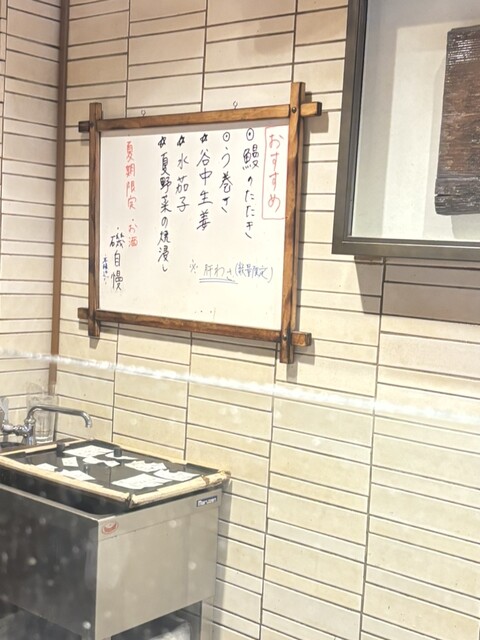 おすすめ
◎鰻のたたき
◎う巻き
☆谷中生姜
☆水茄子
☆夏野菜の煮浸し
※肝わさ(数量限定)
夏期限定・お酒
・磯自慢
Maruzen